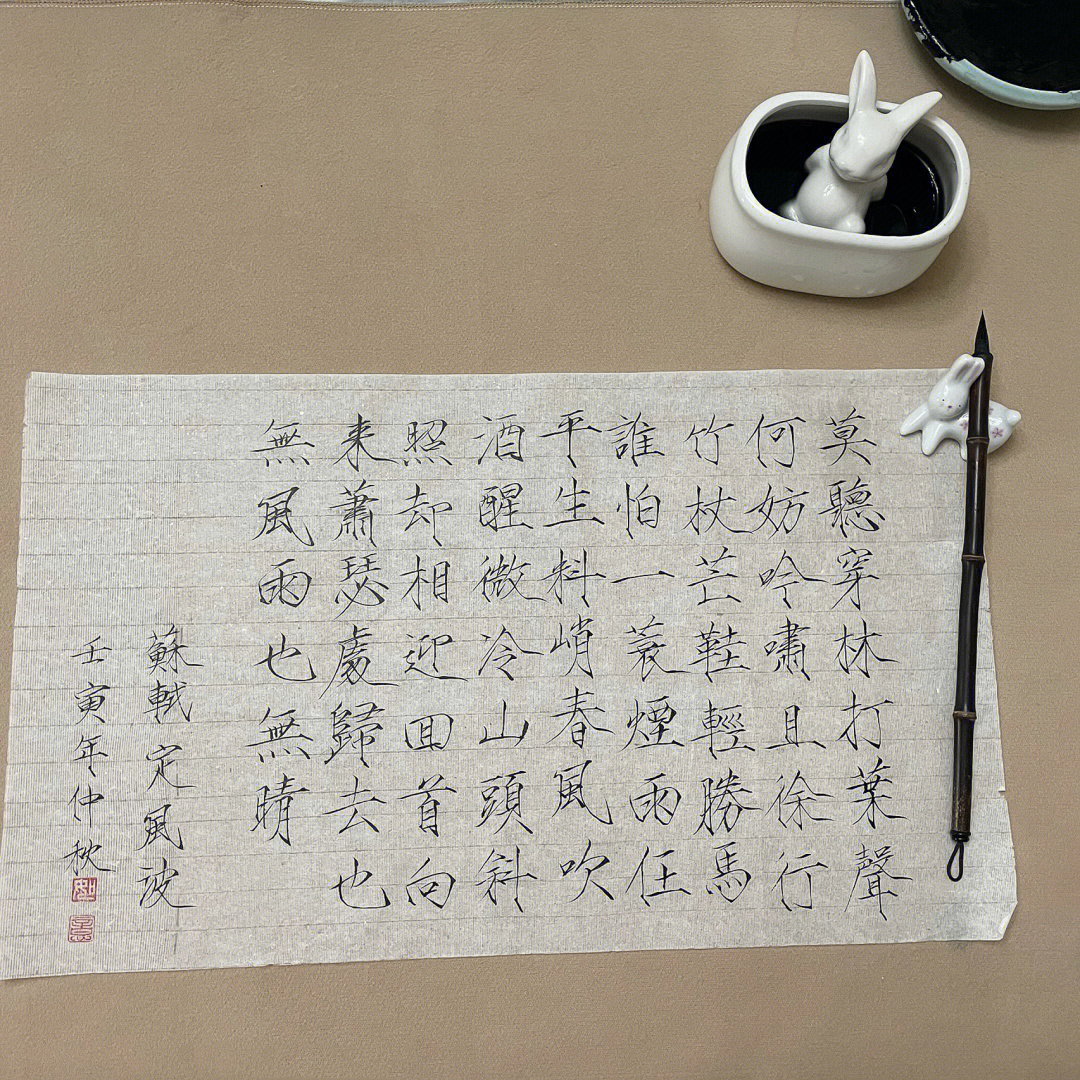 莫聽穿林打葉聲
何妨吟嘯且徐行
竹杖芒鞋輕勝馬
誰怕一蓑煙雨任
平生料峭春風吹
酒醒微冷山頭斜
照却相迎回首向
来蕭瑟處歸去也
無風雨也無晴
蘇軾定風波
壬寅年仲秋